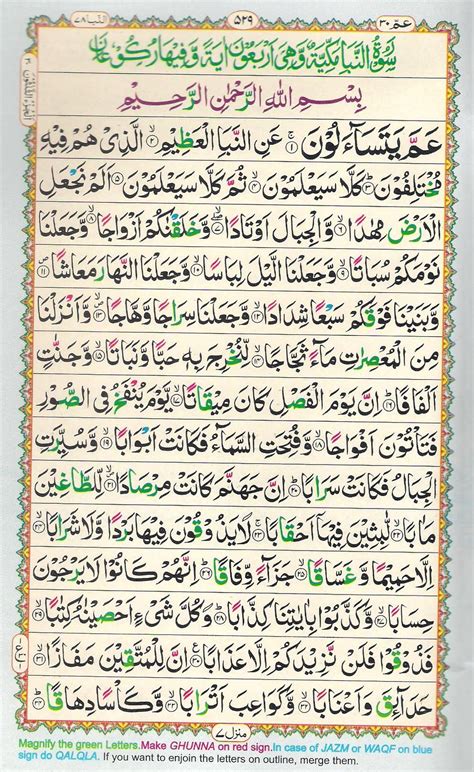 عم ٣٠ ٥٢٩ النبا ٧٨
سُوْرَةُ النَّبَاِ مَكِّيَّةٌ وَّهِىَ اَرْبَعُوْنَ اٰيَةً وَّفِيْهَا رُكُوْعَانِ
بِسْمِ اللّٰهِ الرَّحْمٰنِ الرَّحِيْمِ
عَمَّ يَتَسَآءَلُوْنَ ۚ﴿۱﴾ عَنِ النَّبَاِ الْعَظِيْمِ ۙ﴿۲﴾ الَّذِىْ هُمْ فِيْهِ
مُخْتَلِفُوْنَ ؕ﴿۳﴾ كَلَّا سَيَعْلَمُوْنَ ۙ﴿۴﴾ ثُمَّ كَلَّا سَيَعْلَمُوْنَ ﴿۵﴾ اَلَمْ نَجْعَلِ
الْاَرْضَ مِهٰدًا ۙ﴿۶﴾ وَّالْجِبَالَ اَوْتَادًا ۪ۙ﴿۷﴾ وَّخَلَقْنٰكُمْ اَزْوَاجًا ۙ﴿۸﴾ وَّجَعَلْنَا
نَوْمَكُمْ سُبَاتًا ۙ﴿۹﴾ وَّجَعَلْنَا الَّيْلَ لِبَاسًا ۙ﴿۱۰﴾ وَّجَعَلْنَا النَّهَارَ مَعَاشًا ﴿۱۱﴾
وَّبَنَيْنَا فَوْقَكُمْ سَبْعًا شِدَادًا ۙ﴿۱۲﴾ وَّجَعَلْنَا سِرَاجًا وَّهَّاجًا ۪ۙ﴿۱۳﴾ وَّاَنْزَلْنَا
مِنَ الْمُعْصِرٰتِ مَآءً ثَجَّاجًا ۙ﴿۱۴﴾ لِّنُخْرِجَ بِهٖ حَبًّا وَّنَبَاتًا ۙ﴿۱۵﴾ وَّجَنّٰتٍ
اَلْفَافًا ؕ﴿۱۶﴾ اِنَّ يَوْمَ الْفَصْلِ كَانَ مِيْقَاتًا ۙ﴿۱۷﴾ يَّوْمَ يُنْفَخُ فِى الصُّوْرِ
فَتَاْتُوْنَ اَفْوَاجًا ۙ﴿۱۸﴾ وَّفُتِحَتِ السَّمَآءُ فَكَانَتْ اَبْوَابًا ۙ﴿۱۹﴾ وَّسُيِّرَتِ
الْجِبَالُ فَكَانَتْ سَرَابًا ؕ﴿۲۰﴾ اِنَّ جَهَنَّمَ كَانَتْ مِرْصَادًا ۪ۙ﴿۲۱﴾ لِّلطَّاغِيْنَ
مَاٰبًا ۙ﴿۲۲﴾ لّٰبِثِيْنَ فِيْهَاۤ اَحْقَابًا ۚ﴿۲۳﴾ لَا يَذُوْقُوْنَ فِيْهَا بَرْدًا وَّلَا شَرَابًا ۙ﴿۲۴﴾
اِلَّا حَمِيْمًا وَّغَسَّاقًا ۙ﴿۲۵﴾ جَزَآءً وِّفَاقًا ؕ﴿۲۶﴾ اِنَّهُمْ كَانُوْا لَا يَرْجُوْنَ
حِسَابًا ۙ﴿۲۷﴾ وَّكَذَّبُوْا بِاٰيٰتِنَا كِذَّابًا ؕ﴿۲۸﴾ وَكُلَّ شَىْءٍ اَحْصَيْنٰهُ كِتٰبًا ۙ﴿۲۹﴾
فَذُوْقُوْا فَلَنْ نَّزِيْدَكُمْ اِلَّا عَذَابًا ﴿۳۰﴾ اِنَّ لِلْمُتَّقِيْنَ مَفَازًا ۙ﴿۳۱﴾
حَدَآئِقَ وَاَعْنَابًا ۙ﴿۳۲﴾ وَّكَوَاعِبَ اَتْرَابًا ۙ﴿۳۳﴾ وَّكَاْسًا دِهَاقًا ؕ﴿۳۴﴾
منزل ٧
Magnify the green Letters.Make GHUNNA on red sign.In case of JAZM or WAQF on blue
sign do QALQLA. If you want to enjoin the letters on outline, merge them.